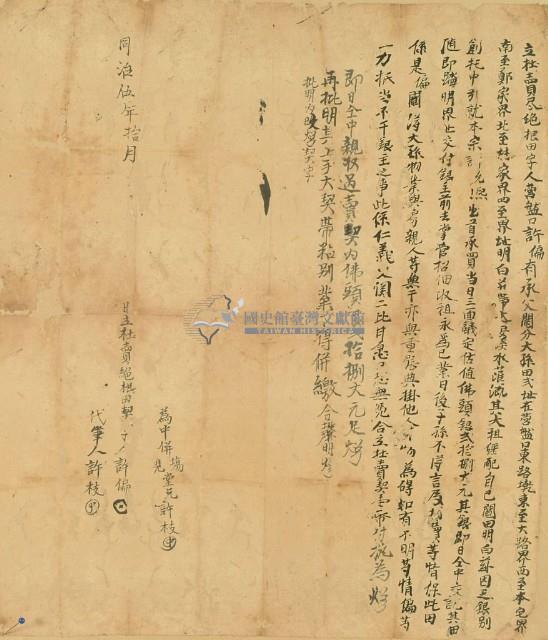 立杜賣尽絕根田字人營盤口許偏有承父鬮分大孫田式址在營盤口東路墘東至大路界西至本宅界
南至鄭家界北至林家界四至界址明白并帶水灌溉其大租經配自己鬮田明白茲因乏銀別
創托中引就本宗許出首承買當日三面議定估值佛頭銀式拾捌大元其銀即日仝中交訖其田
隨即踏明界址交付銀主前去掌管招佃收租永為己業日後子孫不得言及找贖等情保此田
係是偏鬮得大孫物業與房親人等無干亦無重張典掛他人為碍如有不明等情偏等
一力抵当不干銀主之事此係仁義父関二比甘愿口恐無憑合立杜賣契壹帋付執為炤
即日仝中親收過賣契內佛頭拾捌大元足炤
再批明其上手大契帶黏別業不得併繳合批明炤
批明內
同治伍年拾月
日立杜賣絕根田契人許偏
為中併塲見
許枝
代筆人許枝
國史館臺灣文獻館
TAIWAN HISTORICA